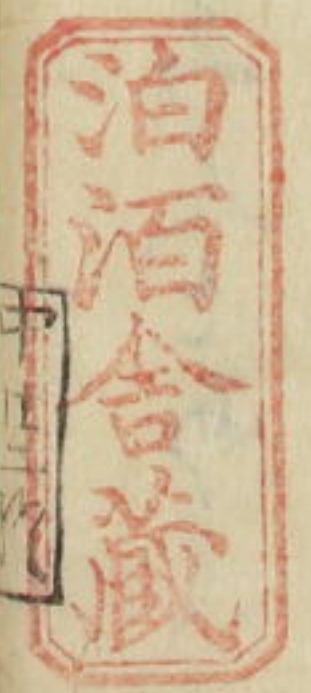 泊洦舎蔵